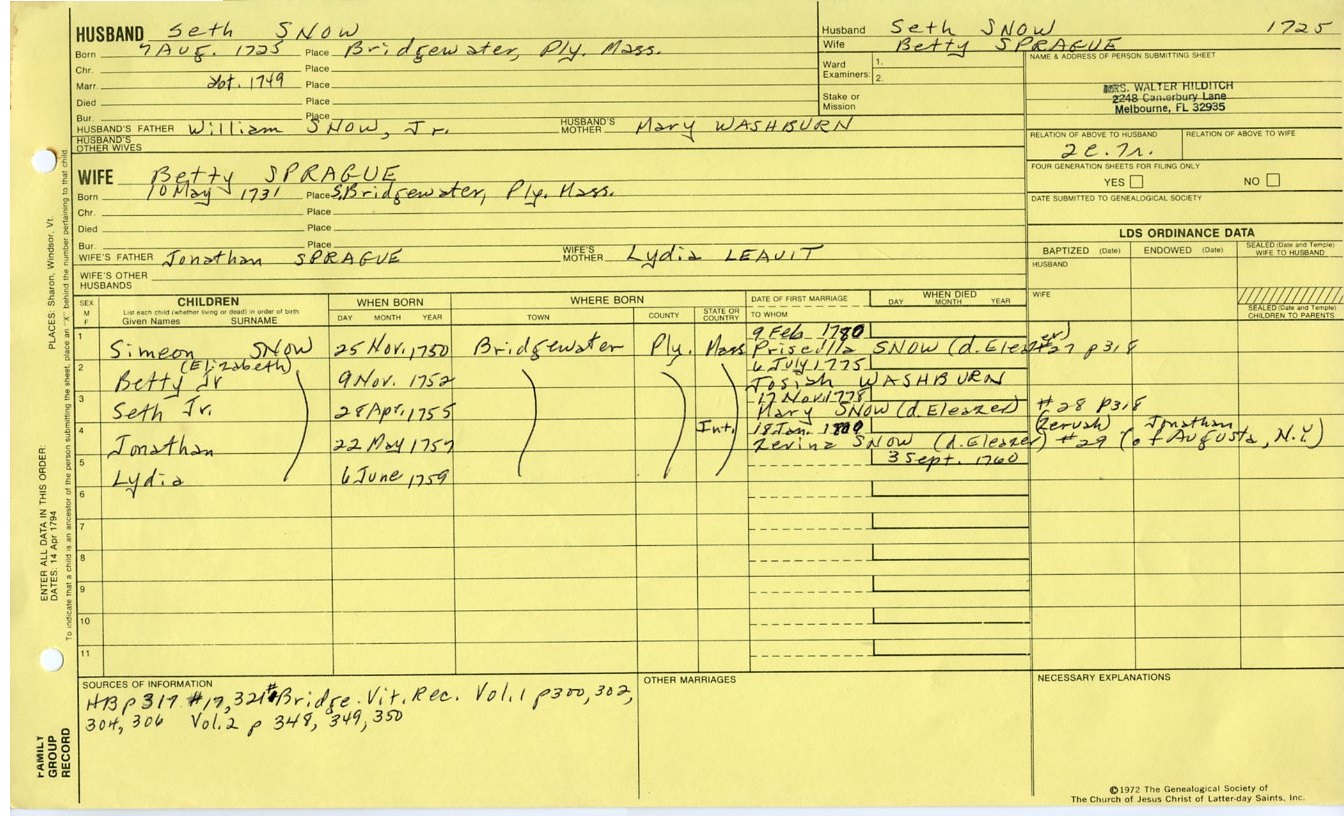 HUSBAND Seth SNOW
Born 7 Aug. 1725 Place Bridgewater, Ply. Mass.
Chr. Place
Marr. 1749 Place
Died Place
Bur. Place
HUSBAND'S FATHER William SNOW, Jr. HUSBAND'S MOTHER Mary WASHBURN
HUSBAND'S OTHER WIVES
WIFE Betty SPRAGUE
Born 10 May 1731 Place S. Bridgewater, Ply. Mass.
Chr. Place
Died Place
Bur. Place
WIFE'S FATHER Jonathan SPRAGUE WIFE'S MOTHER Lydia LEAVIT
WIFE'S OTHER HUSBANDS
Husband Seth SNOW 1725
Wife Betty SPRAGUE
Ward Examiners: 1. 2.
Stake or Mission
NAME & ADDRESS OF PERSON SUBMITTING SHEET
MRS. WALTER HILDITCH
2248 Canterbury Lane
Melbourne, FL 32935
RELATION OF ABOVE TO HUSBAND RELATION OF ABOVE TO WIFE
2c.7r.
FOUR GENERATION SHEETS FOR FILING ONLY
YES NO
DATE SUBMITTED TO GENEALOGICAL SOCIETY
LDS ORDINANCE DATA
BAPTIZED (Date) ENDOWED (Date) SEALED (Date and Temple) WIFE TO HUSBAND
HUSBAND
WIFE
SEALED (Date and Temple) CHILDREN TO PARENTS
SEX M F
CHILDREN
List each child (whether living or dead) in order of birth
Given Names SURNAME
WHEN BORN
DAY MONTH YEAR
WHERE BORN
TOWN COUNTY STATE OR COUNTRY
DATE OF FIRST MARRIAGE
TO WHOM
WHEN DIED
DAY MONTH YEAR
1 Simeon SNOW 25 Nov. 1750 Bridgewater Ply. Mass 9 Feb 1780
Priscilla SNOW (d. Eleazer) #27 p318
2 (Elizabeth) Betty Jr 9 Nov. 1752 6 July 1775
Josiah WASHBURN
3 Seth Jr. 28 Apr. 1755 17 Nov 1778
Mary SNOW (d. Eleazer) #28 p318
4 Jonathan 22 May 1757 Int. 18 Jan. 1780
Zevina SNOW (d. Eleazer) #29 (Zeruah) Jonathan (of Augusta, N.Y.)
5 Lydia 6 June 1759 3 Sept. 1760
6
7
8
9
10
11
SOURCES OF INFORMATION
HB p 317 #17, 321 Bridge. Vit. Rec. Vol. 1 p 300, 302,
304, 306 Vol. 2 p 348, 349, 350
OTHER MARRIAGES
NECESSARY EXPLANATIONS
©1972 The Genealogical Society of
The Church of Jesus Christ of Latter-day Saints, Inc.
PLACES: Sharon, Windsor, Vt.
ENTER ALL DATA IN THIS ORDER:
DATES: 14 Apr 1794
To indicate that a child is an ancestor of the person submitting the sheet, place an "X" behind the number pertaining to that child.
FAMILY GROUP RECORD